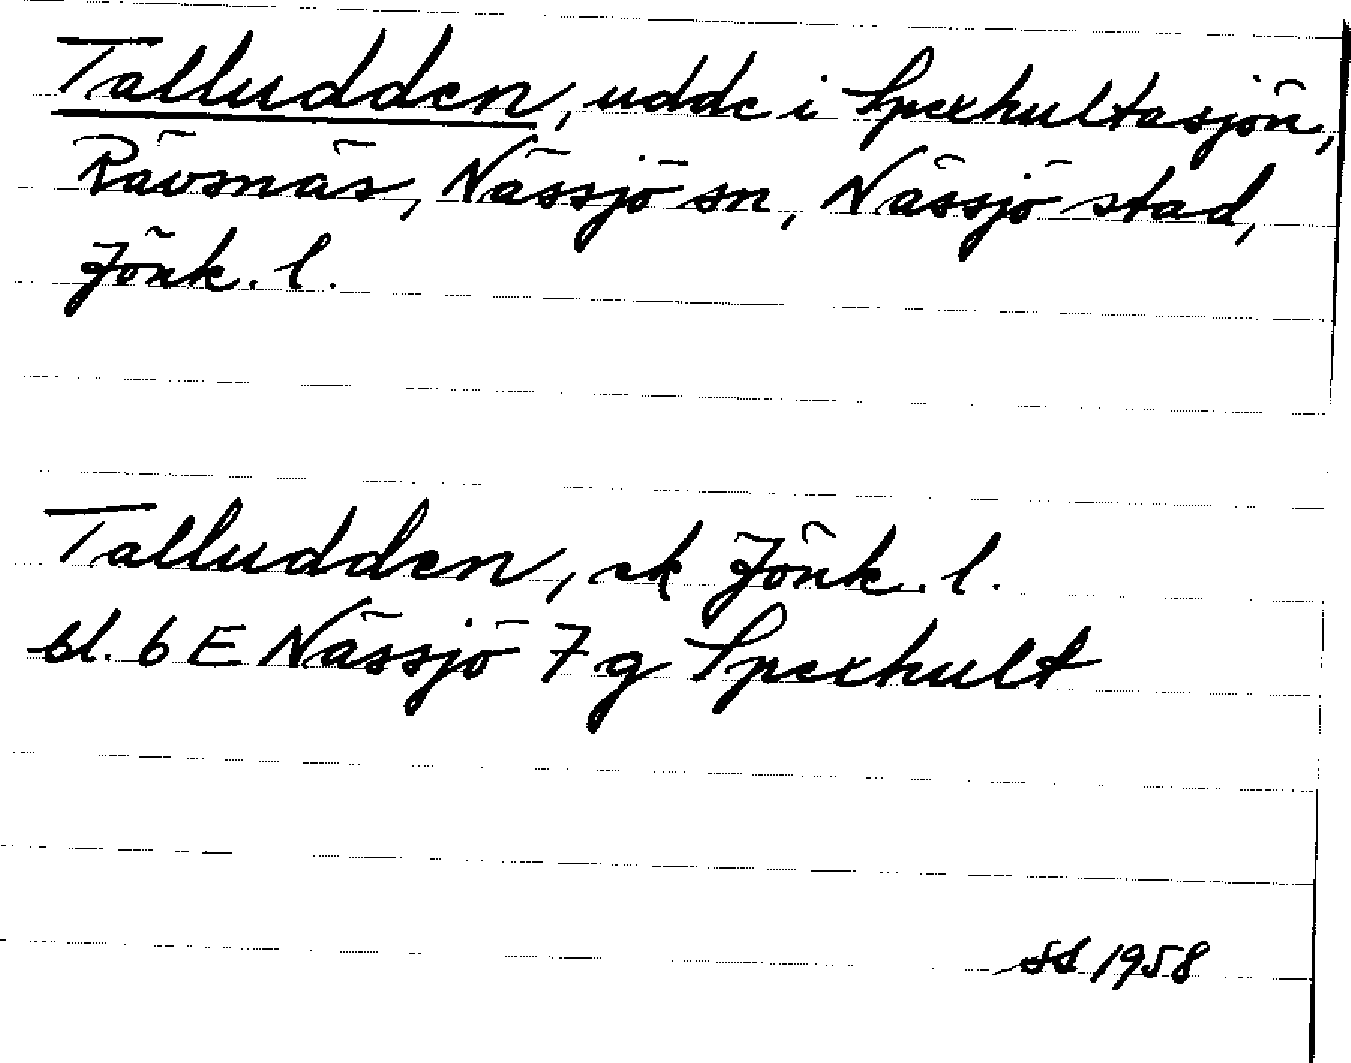 Talludden, udde i Sperhultasjön,
Rävsnäs, Nässjö sn, Nässjö stad,
Jönk. l.
Talludden, ek Jönk. l.
bl. 6 E Nässjö 7 g Sperhult
SS 1958